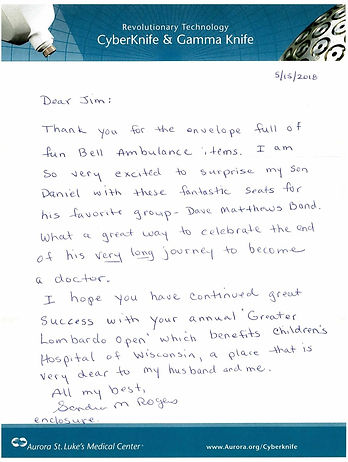 Revolutionary Technology
CyberKnife & Gamma Knife
5/15/2018
Dear Jim:
Thank you for the envelope full of
fun Bell Ambulance items. I am
so very excited to surprise my son
Daniel with these fantastic seats for
his favorite group - Dave Matthews Band.
What a great way to celebrate the end
of his very long journey to become
a doctor.
I hope you have continued great
success with your annual 'Greater
Lombardo Open' which benefits Children's
Hospital of Wisconsin, a place that is
very dear to my husband and me.
All my best,
Sandra M Rogers
enclosure
Aurora St. Luke's Medical Center
www.Aurora.org/Cyberknife